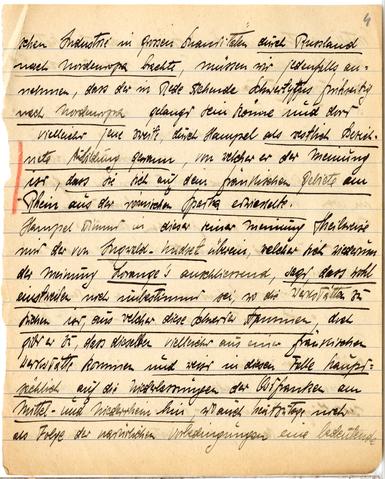 4
schen Industrie in grossen Quantitäten durch Russland
nach Nordeuropa brachte, müssen wir jedenfalls an-
nehmen, dass der in Rede stehende Schwerttypus frühzeitig
nach Nordeuropa gelangt sein könne und dort
vielleicht jene breite, durch Hampel als westlich bezeich-
nete Bildung gewann, von welcher er der Meinung
war, dass sie sich auf dem fränkischen Gebiete am
Rhein aus der römischen Spatha entwickelte.
Hampel stimmt in dieser seiner Meinung theilweise
mit der von Ingwald-Undset überein, welcher sich wiederum
der Meinung Lorange's anschliessend, sagt, dass wohl
einstweilen noch unbestimmt sei, wo die Werkstätten zu
suchen sei, aus welcher diese Schwerter stammen, doch
gibt er zu dass dieselben vielleicht aus einer fränkischen
Werkstätte kommen und weist in diesem Falle haupt-
sächlich auf die Niederlassungen der Franken am
Mittel- und Niederrhein hin, wo auch heutzutage noch
als Folge der natürlichen Vorbedingungen eine bedeutende